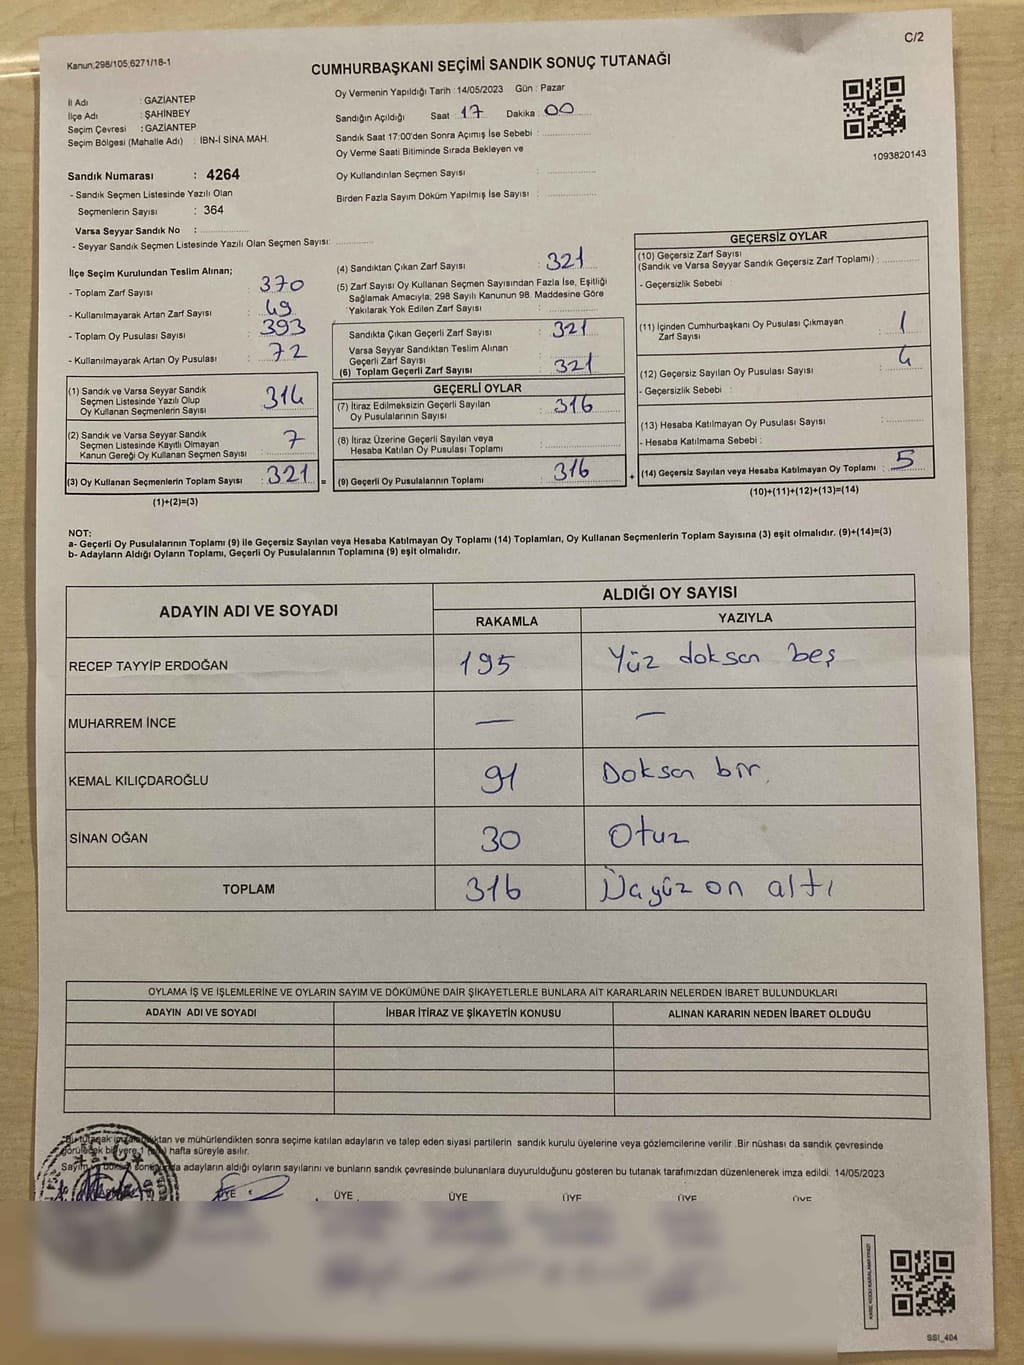 Kanun:298/105;6271/18-1
C/2
CUMHURBAŞKANI SEÇİMİ SANDIK SONUÇ TUTANAĞI
İl Adı : GAZİANTEP
İlçe Adı : ŞAHİNBEY
Seçim Çevresi : GAZİANTEP
Seçim Bölgesi (Mahalle Adı) : İBN-İ SİNA MAH.
Sandık Numarası : 4264
- Sandık Seçmen Listesinde Yazılı Olan
Seçmenlerin Sayısı : 364
Varsa Seyyar Sandık No :
- Seyyar Sandık Seçmen Listesinde Yazılı Olan Seçmen Sayısı:
Oy Vermenin Yapıldığı Tarih : 14/05/2023 Gün : Pazar
Sandığın Açıldığı Saat 17 Dakika 00
Sandık Saat 17:00'den Sonra Açımış İse Sebebi :
Oy Verme Saati Bitiminde Sırada Bekleyen ve
Oy Kullandırılan Seçmen Sayısı :
Birden Fazla Sayım Döküm Yapılmış İse Sayısı :
1093820143
İlçe Seçim Kurulundan Teslim Alınan;
- Toplam Zarf Sayısı : 370
- Kullanılmayarak Artan Zarf Sayısı : 49
- Toplam Oy Pusulası Sayısı : 393
- Kullanılmayarak Artan Oy Pusulası : 72
(1) Sandık ve Varsa Seyyar Sandık
Seçmen Listesinde Yazılı Olup
Oy Kullanan Seçmenlerin Sayısı : 314
(2) Sandık ve Varsa Seyyar Sandık
Seçmen Listesinde Kayıtlı Olmayan
Kanun Gereği Oy Kullanan Seçmen Sayısı : 7
(3) Oy Kullanan Seçmenlerin Toplam Sayısı : 321 =
(1)+(2)=(3)
(4) Sandıktan Çıkan Zarf Sayısı : 321
(5) Zarf Sayısı Oy Kullanan Seçmen Sayısından Fazla İse, Eşitliği
Sağlamak Amacıyla; 298 Sayılı Kanunun 98. Maddesine Göre
Yakılarak Yok Edilen Zarf Sayısı :
Sandıkta Çıkan Geçerli Zarf Sayısı : 321
Varsa Seyyar Sandıktan Teslim Alınan
Geçerli Zarf Sayısı :
(6) Toplam Geçerli Zarf Sayısı : 321
GEÇERLİ OYLAR
(7) İtiraz Edilmeksizin Geçerli Sayılan
Oy Pusulalarının Sayısı : 316
(8) İtiraz Üzerine Geçerli Sayılan veya
Hesaba Katılan Oy Pusulası Toplamı :
(9) Geçerli Oy Pusulalarının Toplamı : 316 +
GEÇERSİZ OYLAR
(10) Geçersiz Zarf Sayısı
(Sandık ve Varsa Seyyar Sandık Geçersiz Zarf Toplamı) :
- Geçersizlik Sebebi :
(11) İçinden Cumhurbaşkanı Oy Pusulası Çıkmayan
Zarf Sayısı : 1
(12) Geçersiz Sayılan Oy Pusulası Sayısı : 4
- Geçersizlik Sebebi :
(13) Hesaba Katılmayan Oy Pusulası Sayısı :
- Hesaba Katılmama Sebebi :
(14) Geçersiz Sayılan veya Hesaba Katılmayan Oy Toplamı : 5
(10)+(11)+(12)+(13)=(14)
NOT:
a- Geçerli Oy Pusulalarının Toplamı (9) ile Geçersiz Sayılan veya Hesaba Katılmayan Oy Toplamı (14) Toplamları, Oy Kullanan Seçmenlerin Toplam Sayısına (3) eşit olmalıdır. (9)+(14)=(3)
b- Adayların Aldığı Oyların Toplamı, Geçerli Oy Pusulalarının Toplamına (9) eşit olmalıdır.
ADAYIN ADI VE SOYADI
ALDIĞI OY SAYISI
RAKAMLA YAZIYLA
RECEP TAYYİP ERDOĞAN 195 Yüz doksan beş
MUHARREM İNCE — —
KEMAL KILIÇDAROĞLU 91 Doksan bir.
SİNAN OĞAN 30 Otuz
TOPLAM 316 Üçyüz on altı
OYLAMA İŞ VE İŞLEMLERİNE VE OYLARIN SAYIM VE DÖKÜMÜNE DAİR ŞİKAYETLERLE BUNLARA AİT KARARLARIN NELERDEN İBARET BULUNDUKLARI
ADAYIN ADI VE SOYADI İHBAR İTİRAZ VE ŞİKAYETİN KONUSU ALINAN KARARIN NEDEN İBARET OLDUĞU
Bu tutanak imzalandıktan ve mühürlendikten sonra seçime katılan adayların ve talep eden siyasi partilerin sandık kurulu üyelerine veya gözlemcilerine verilir .Bir nüshası da sandık çevresinde
görülecek bir yere 1 hafta süreyle asılır.
Sayım ve döküm sonucunda adayların aldığı oyların sayılarını ve bunların sandık çevresinde bulunanlara duyurulduğunu gösteren bu tutanak tarafımızdan düzenlenerek imza edildi. 14/05/2023
ÜYE ÜYE ÜYE ÜYE ÜYE ÜYE
SSI_404